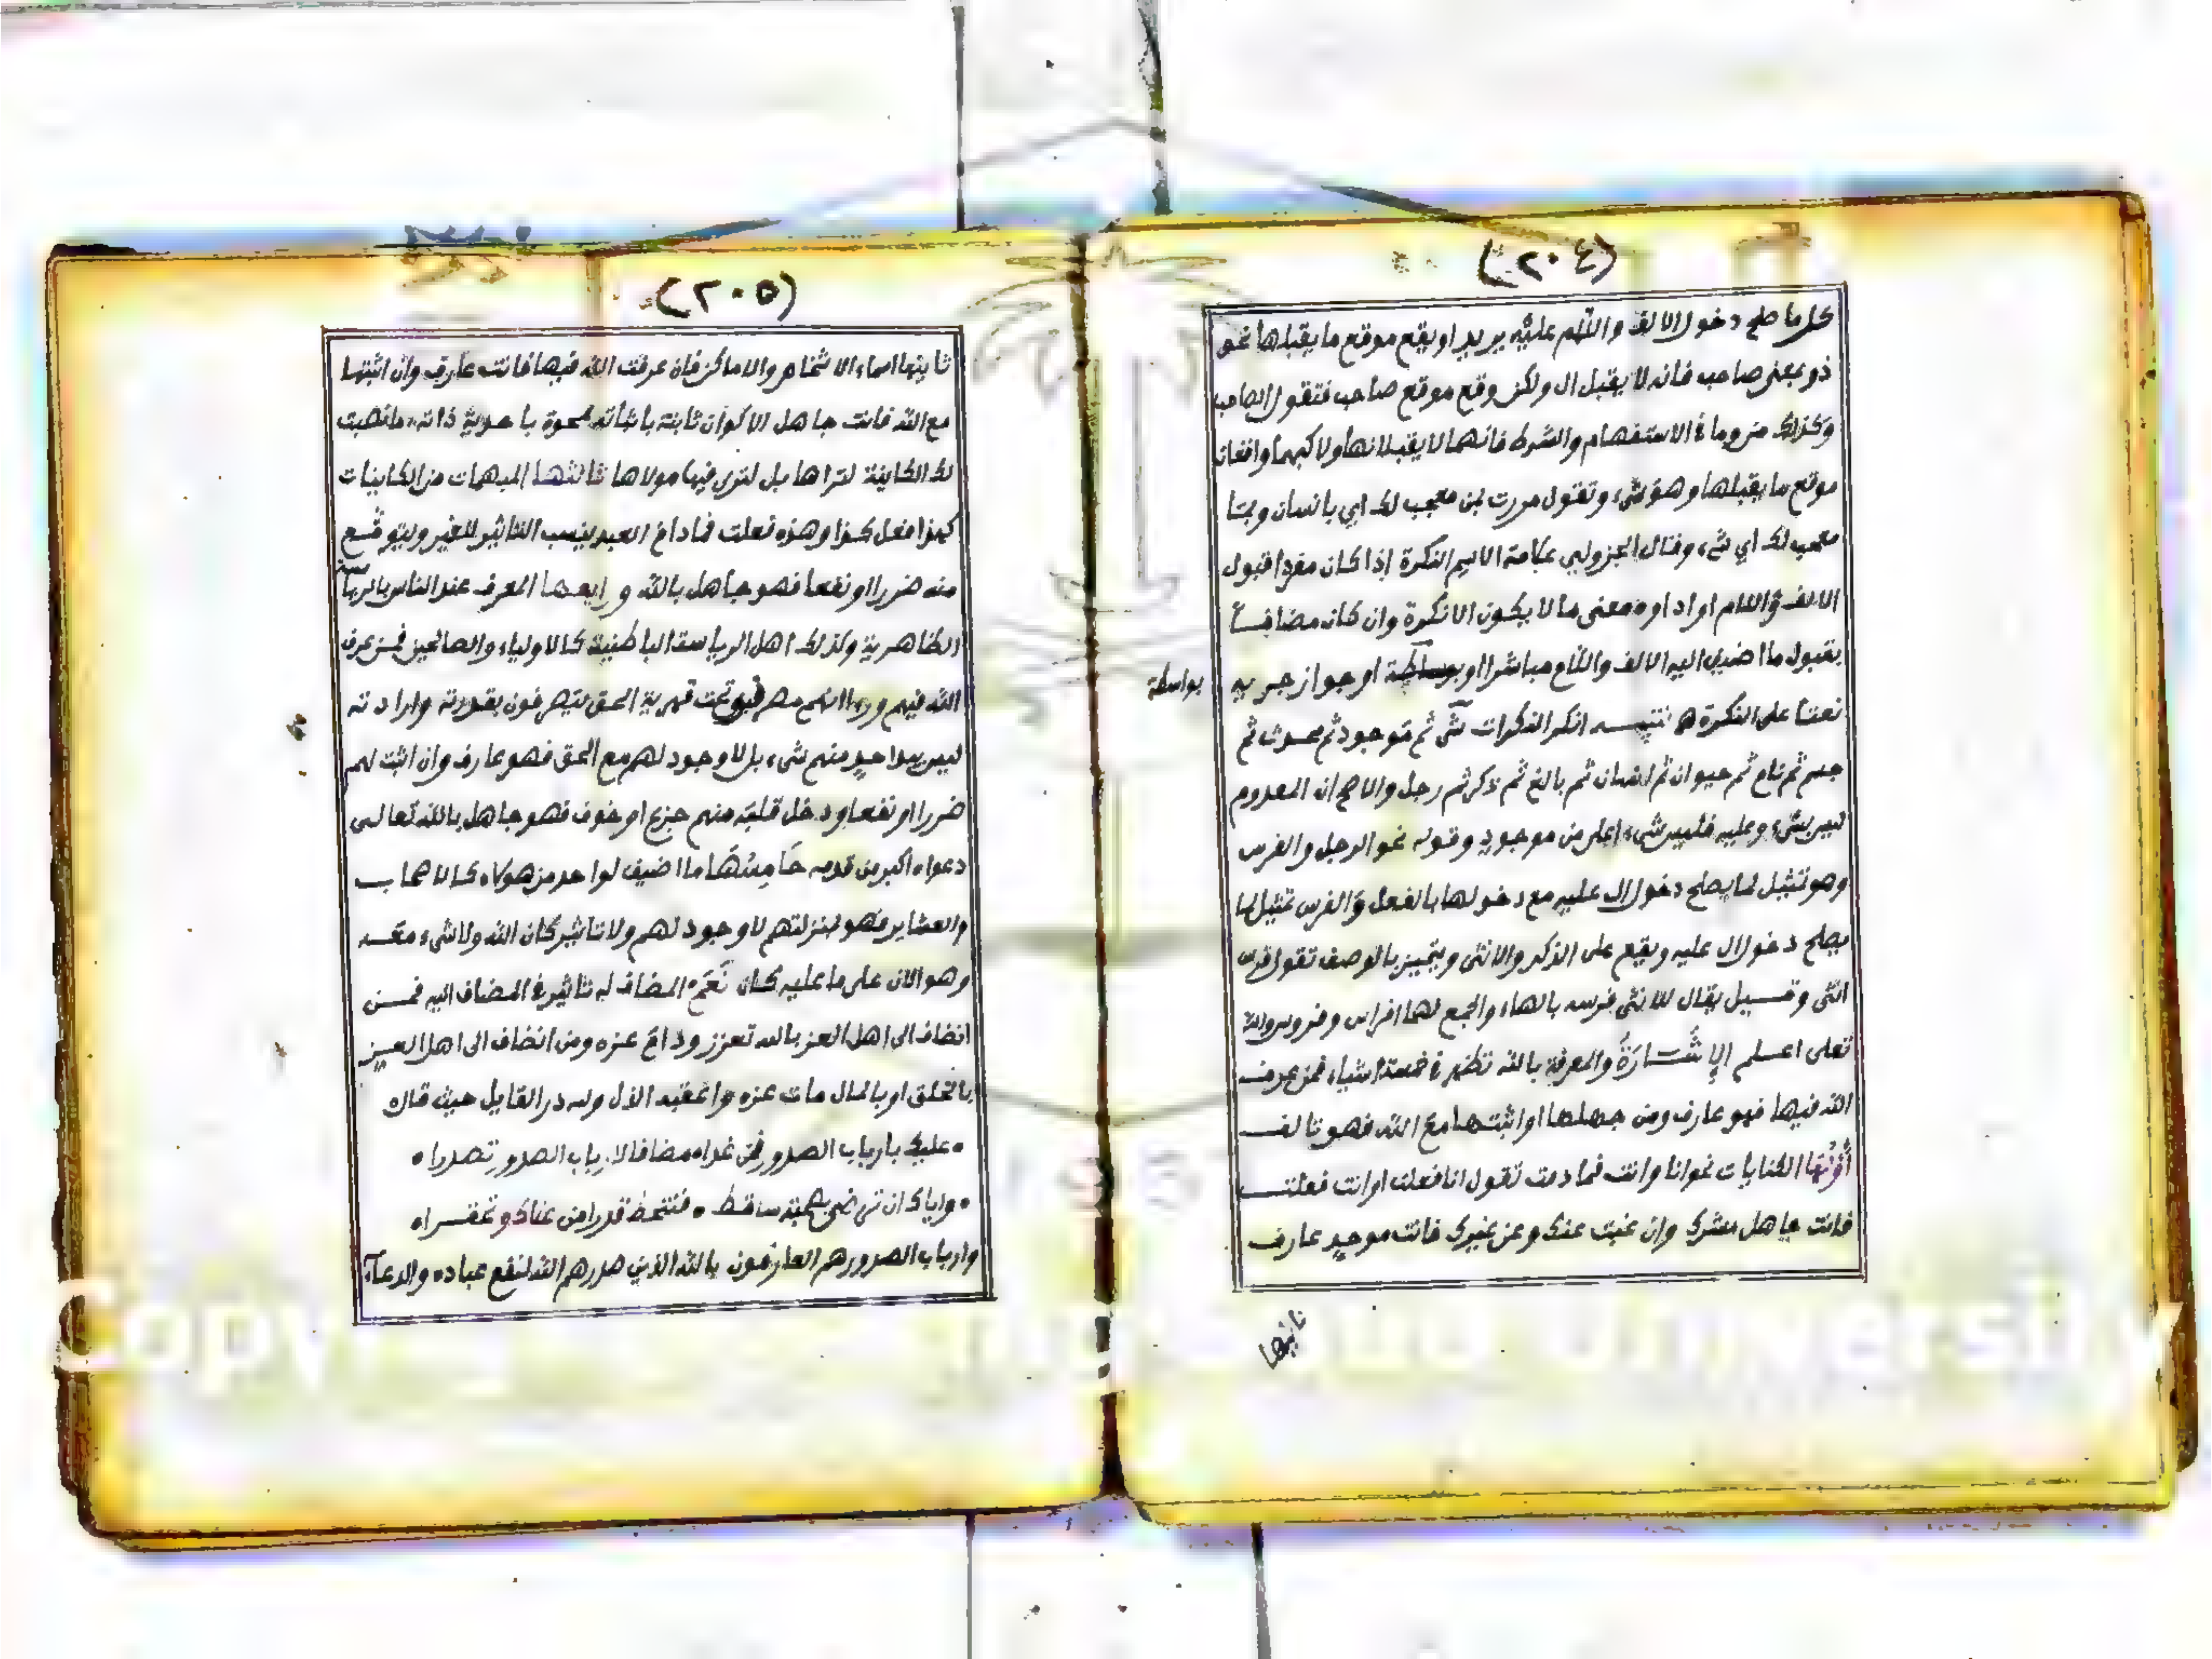 (٢٠٤)
كل ما صلح دخول الالف واللام عليه يريد او يقع موقع ما يقبلها نحو
ذو بمعنى صاحب فانه لا يقبل ال ولكن وقع موقع صاحب فتقول الصاحب
وكذلك من وما في الاستفهام والشرط فانهما لا يقبلانها ولاكنهما واقعان
موقع ما يقبلها وهو شيء وتقول مررت بمن معجب لك اي بانسان وبما
معجب لك اي شيء وقال الجزولي علامة الاسم النكرة اذا كان مفردا قبول
الالف واللام او اداوه معنى ما لا يكون الا نكرة وان كان مضافا
بقبول ما اضيف اليه الالف واللام مباشرا او بوساطة او جواز جريه
بواسطة
نعتا على النكرة هـ تتمة انكر النكرات شي ثم موجود ثم محدث ثم
جسم ثم نام ثم حيوان ثم انسان ثم بالغ ثم ذكر ثم رجل والاصح ان المعدوم
ليس بشيء وعليه فليس شيء اعلى من موجود وقوله نحو الرجل والفرس
وهو تمثيل لما يصلح دخول ال عليه مع دخولها بالفعل والفرس تمثيل لما
يصلح دخول ال عليه ويقع على الذكر والانثى ويتميز بالوصف تقول فرس
انثى وقيل يقال للانثى فرسه بالهاء والجمع لهما افراس وفروس والله
تعلى اعلم الاشارة والمعرفة بالله تظهر في خمسة اشياء فمن عرف
الله فيها فهو عارف ومن جهلها او اثبتها مع الله فهو تالف
اولها الكنايات نحو انا وانت فما دمت تقول انا فعلت او انت فعلت
فانت جاهل مشرك وان غبت عنك وعن غيرك فانت موحد عارف
ثانيها
(٢٠٥)
ثانيها اسماء الاشخاص والاماكن فان عرفت الله فيها فانت عارف وان اثبتها
مع الله فانت جاهل الاكوان ثابتة باثباته ممحوة باحدية ذاته ما نصبت
لك الكاينة لتراها بل لترى فيها مولاها ثالثها المبهمات من الكاينات
كهذا فعل كذا وهذه فعلت فما دام العبد ينسب التاثير للغير ويتوقع
منه ضررا او نفعا فهو جاهل بالله ورابعها المعرف عند الناس بالرياسة
الظاهرية وكذلك اهل الرياسة الباطنية كالاولياء والصالحين فمن عرف
الله فيهم ورءا انهم مصرفون تحت قهرية الحق يتصرفون بقدرته وارادته
ليس بيد احد منهم شيء بل لا وجود لهم مع الحق فهو عارف وان اثبت لهم
ضررا او نفعا ودخل قلبه منهم جزع او خوف فهو جاهل بالله تعالى
دعواه اكبر من قدمه خامسها ما اضيف لواحد من هولاء كالاصحاب
والعشاير فهو بمنزلتهم لا وجود لهم ولا تاثير كان الله ولا شيء معه
وهو الان على ما عليه كان نعم المضاف له تاثير في المضاف اليه فمن
انضاف الى اهل العز بالله تعزز ودام عزه ومن انضاف الى اهل العز
بالخلق او بالمال مات عزه واعقبه الذل ولله در القايل حيث قال
• عليك بارباب الصدور فمن غدا • مضافا لارباب الصدور تصدرا •
• واياك ان ترضى بصحبة ساقط • فتنحط قدرا من علاك وتحقرا •
وارباب الصدور هم العارفون بالله الذين صدرهم الله لنفع عباده والدعاء